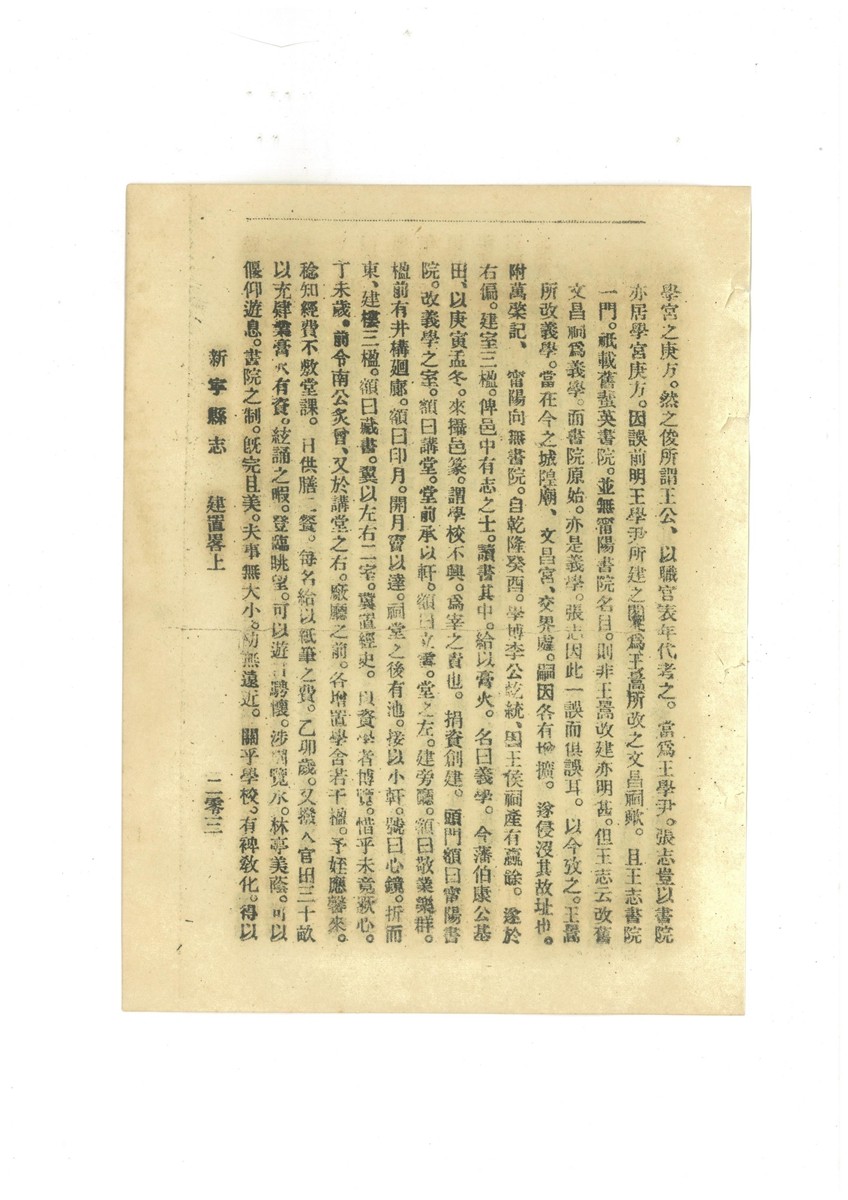 學宮之庚方。然之俊所謂王公、以職官表年代考之。當爲王學尹。張志豈以書院
亦居學宮庚方。因誤前明王學尹所建之爲王暠所改之文昌祠歟。且王志書院
一門。祇載舊蜚英書院。並無甯陽書院名目。則非王暠改建亦明甚。但王志云改舊
文昌祠爲義學。而書院原始。亦是義學。張志因此一誤而俱誤耳。以今攷之。王暠
所改義學。當在今之城隍廟、文昌宮、交界處。嗣因各有增擴。遂侵沒其故址也。
附萬榮記、甯陽向無書院。自乾隆癸酉。學博李公乾統、因王侯祠產有贏餘。遂於
右偏。建室三楹。俾邑中有志之士。讀書其中。給以膏火。名曰義學。今藩伯康公基
田、以庚寅孟冬。來攝邑篆。謂學校不興。爲宰之責也。捐資創建。頭門額曰甯陽書
院。改義學之室。額曰講堂。堂前承以軒。額曰立雪。堂之左。建旁廳。額曰敬業樂群。
楹前有井構廻廊。額曰印月。開月竇以達。祠堂之後有池。接以小軒。號曰心鏡。折而
東、建樓三楹。額曰藏書。翼以左右二室。冀置經史。以資學者博覽。惜乎未竟厥心。
丁未歲。前令南公炙曾、又於講堂之右。廠廳之前。各增置學舍若干楹。予姪應馨來。
稔知經費不敷堂課。日供膳二餐。每名給以紙筆之費。乙卯歲。又撥入官田三十畝
以充肄業膏火有資。絃誦之暇。登臨眺望。可以遊目騁懷。涉澗覽水。林亭美蔭。可以
偃仰遊息。書院之制。既完且美。夫事無大小。功無遠近。關乎學校。有裨敎化。得以
新寧縣志 建置畧上 二零三